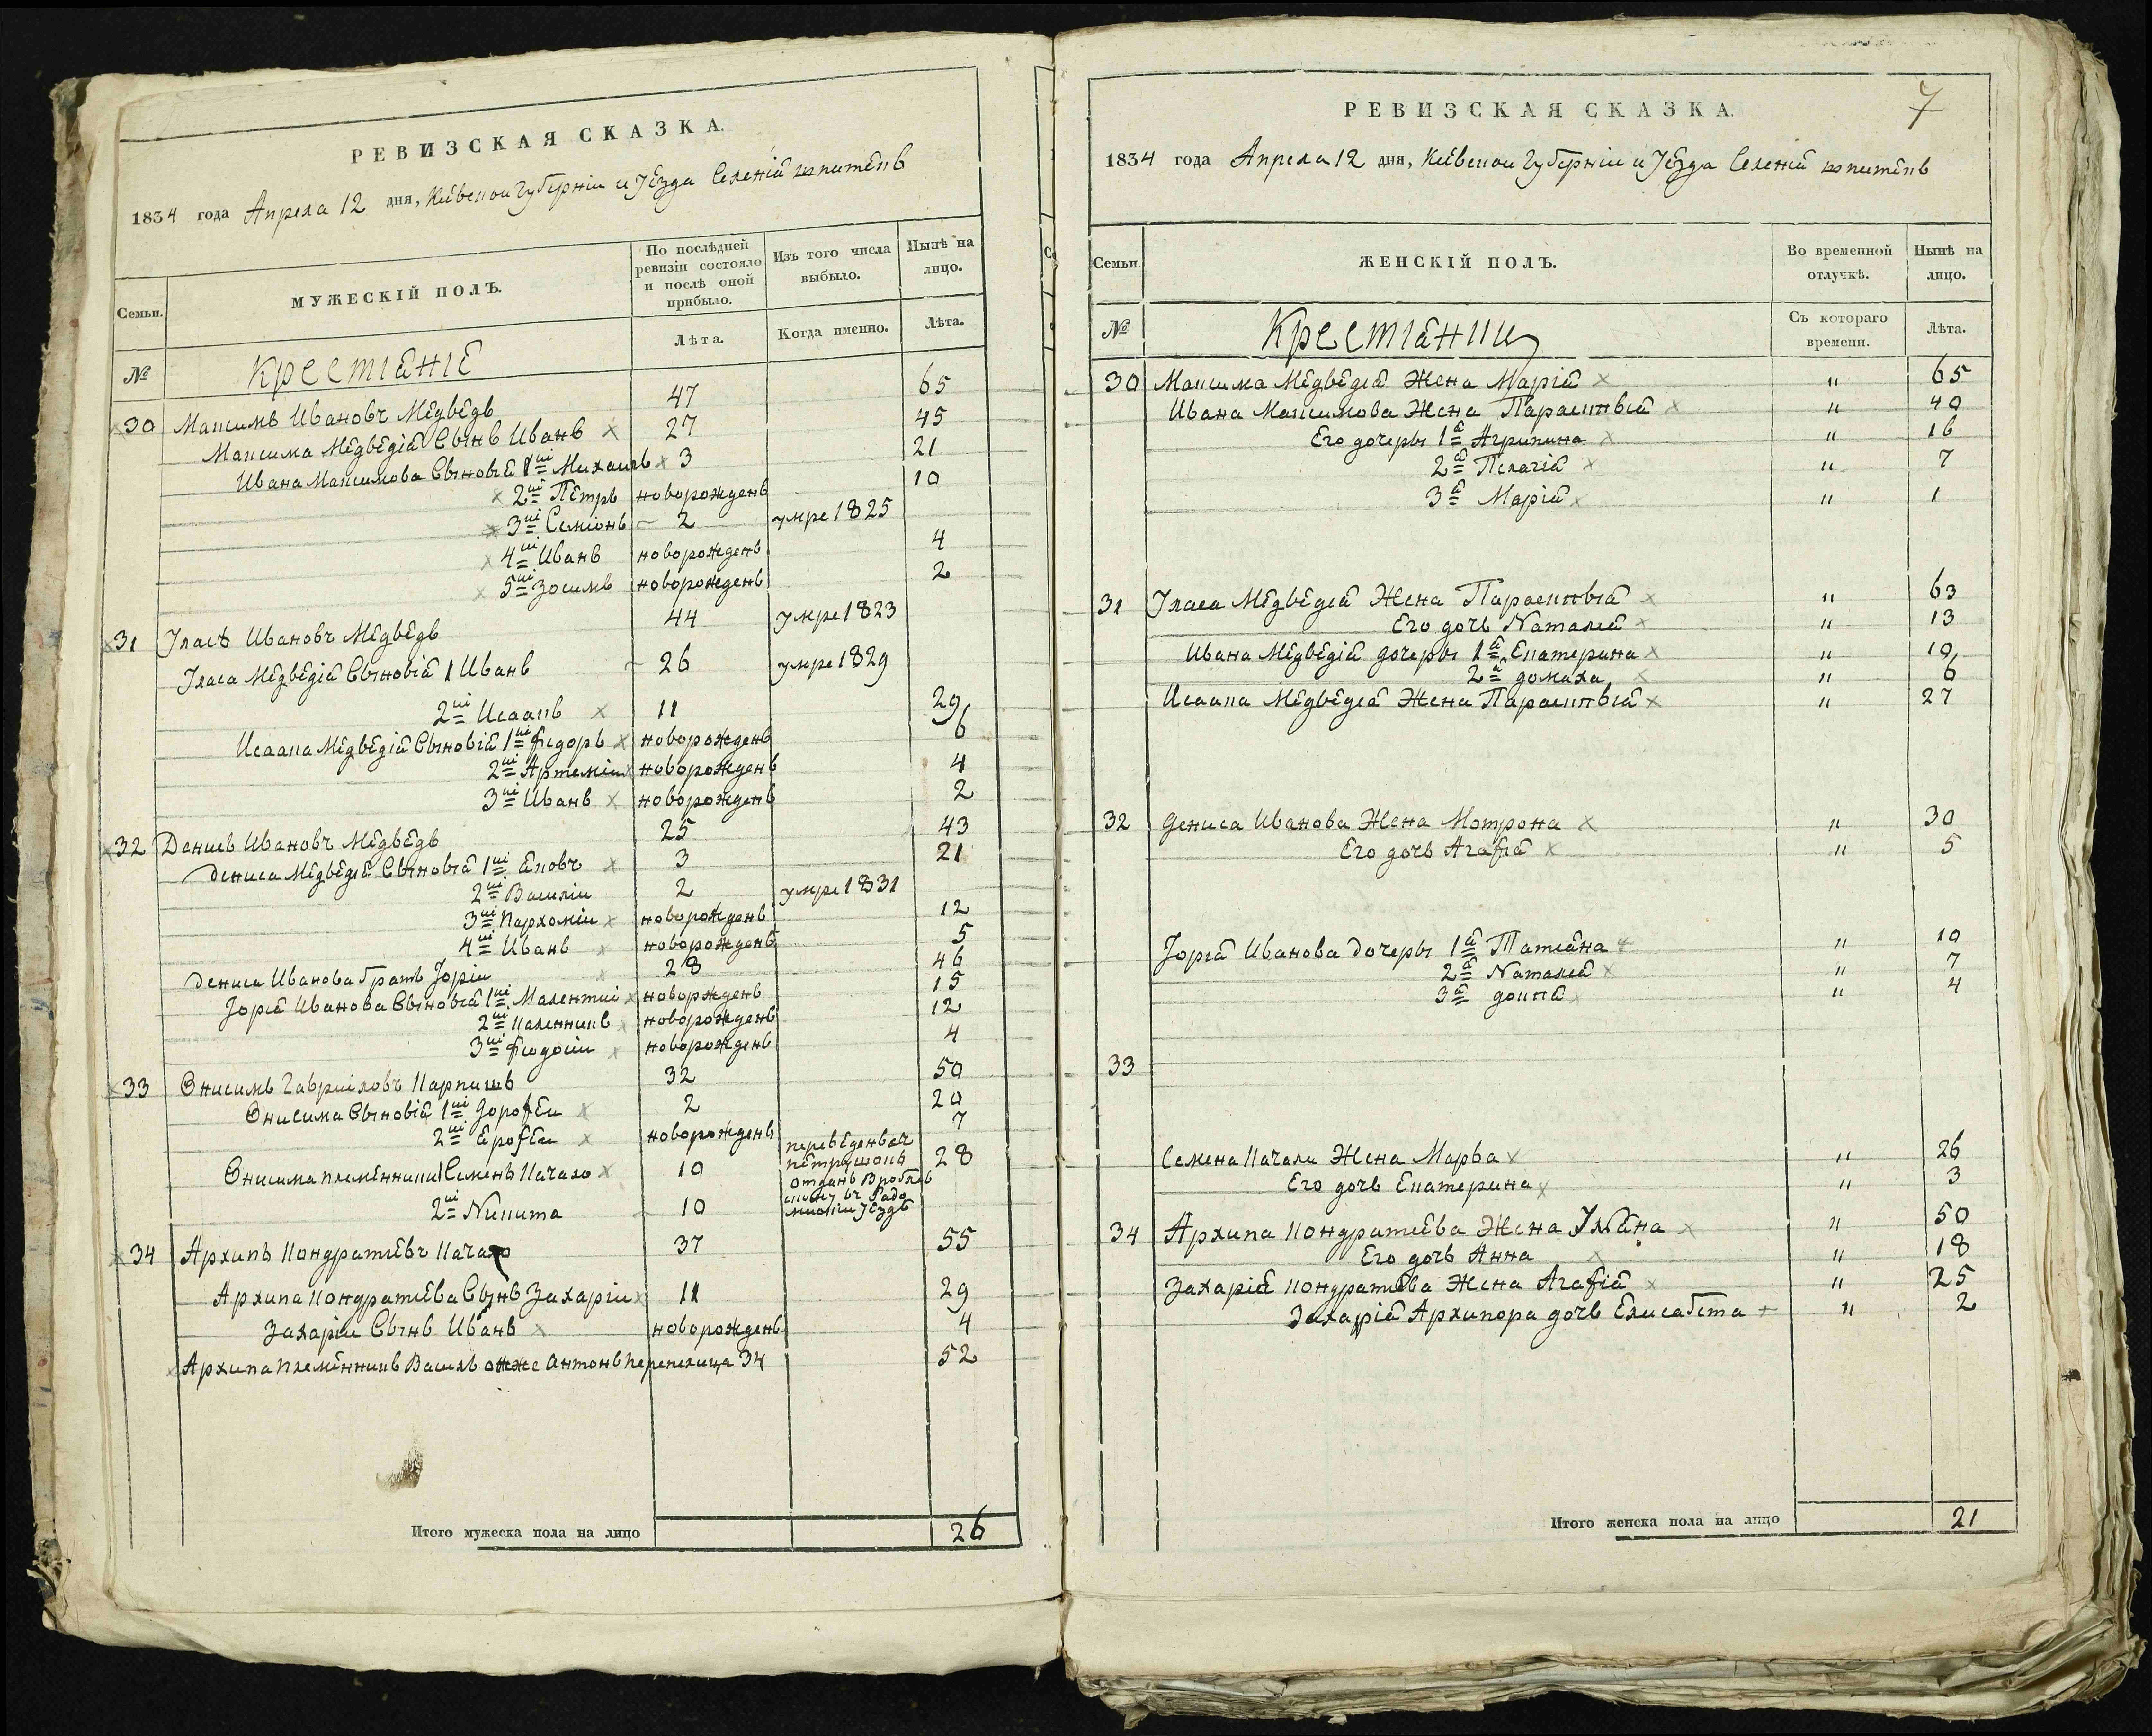 РЕВИЗСКАЯ СКАЗКА.
1834 года Апреля 12 дня, Кіевской Губерніи и Уезда Селенія
Семьи.
МУЖЕСКІЙ ПОЛЪ.
По послѣдней ревизіи состояло и послѣ оной прибыло.
Изъ того числа выбыло.
Нынѣ на лицо.
Лѣта.
Когда именно.
Лѣта.
№
Крестіяне
30 Максимъ Ивановъ Медведь 47 65
Максима Медведія Сынъ Иванъ 27 45
Ивана Максимова Сыновія 1й Михаилъ 3 21
2й Петръ новорожденъ 10
3й Семіонъ 2 умре 1825
4й Иванъ новорожденъ 4
5й Зосимъ новорожденъ 2
31 Уласъ Ивановъ Медведь 44 умре 1823
Уласа Медведія Сыновія 1 Иванъ 26 умре 1829
2й Исаакъ 11 29
Исаака Медведія Сыновія 1й Федоръ новорожденъ 6
2й Артеміи новорожденъ 4
3й Иванъ новорожденъ 2
32 Денисъ Ивановъ Медведь 25 43
Дениса Медведія Сыновія 1й Яковъ 3 21
2й Василіи 2 умре 1831
3й Пархоміи новорожденъ 12
4й Иванъ новорожденъ 5
Дениса Иванова братъ Юріи 28 46
Юрія Иванова Сыновія 1й новорожденъ 15
2й Каленникъ новорожденъ 12
3й Феодосіи новорожденъ 4
33 Онисимъ Гавриіловъ 32 50
Онисима Сыновія 1й Дорофеи 2 20
2й Ерофеи новорожденъ 7
Онисима племенники 1 Семенъ Качало 10 переведенъ 28
2й Никита 10 отданъ Уездъ
34 Архипъ Кондратіевъ Качало 37 55
Архипа Кондратіева Сынъ Захаріи 11 29
Захаріи Сынъ Иванъ новорожденъ 4
Архипа племенникъ Василь онже Антонъ Перепелица 34 52
Итого мужеска пола на лицо 26
7
РЕВИЗСКАЯ СКАЗКА.
1834 года Апреля 12 дня, Кіевской Губерніи и Уезда Селенія
Семьи.
ЖЕНСКІЙ ПОЛЪ.
Во временной отлучкѣ.
Нынѣ на лицо.
№
Крестіянки
Съ котораго времени.
Лѣта.
30 Максима Медведія Жена Марія " 65
Ивана Максимова Жена Параскевія " 40
Его дочеры 1я Агрипина " 16
2я Пелагія " 7
3я Марія " 1
31 Уласа Медведія Жена Параскевія " 63
Его дочь Наталія " 13
Ивана Медведія дочеры 1я Екатерина " 10
2я домаха " 6
Исаака Медведія Жена Параскевія " 27
32 Дениса Иванова Жена Мотрона " 30
Его дочь Агафія " 5
Юрія Иванова Дочеры 1я Татіяна " 10
2я Наталія " 7
3я докія " 4
33
Семена Качали Жена Марва " 26
Его дочь Екатерина " 3
34 Архипа Кондратіева Жена Уліяна " 50
Его дочь Анна " 18
Захарія Кондратіева Жена Агафія " 25
Захарія Архипора дочь Елисабета " 2
Итого женска пола на лицо 21